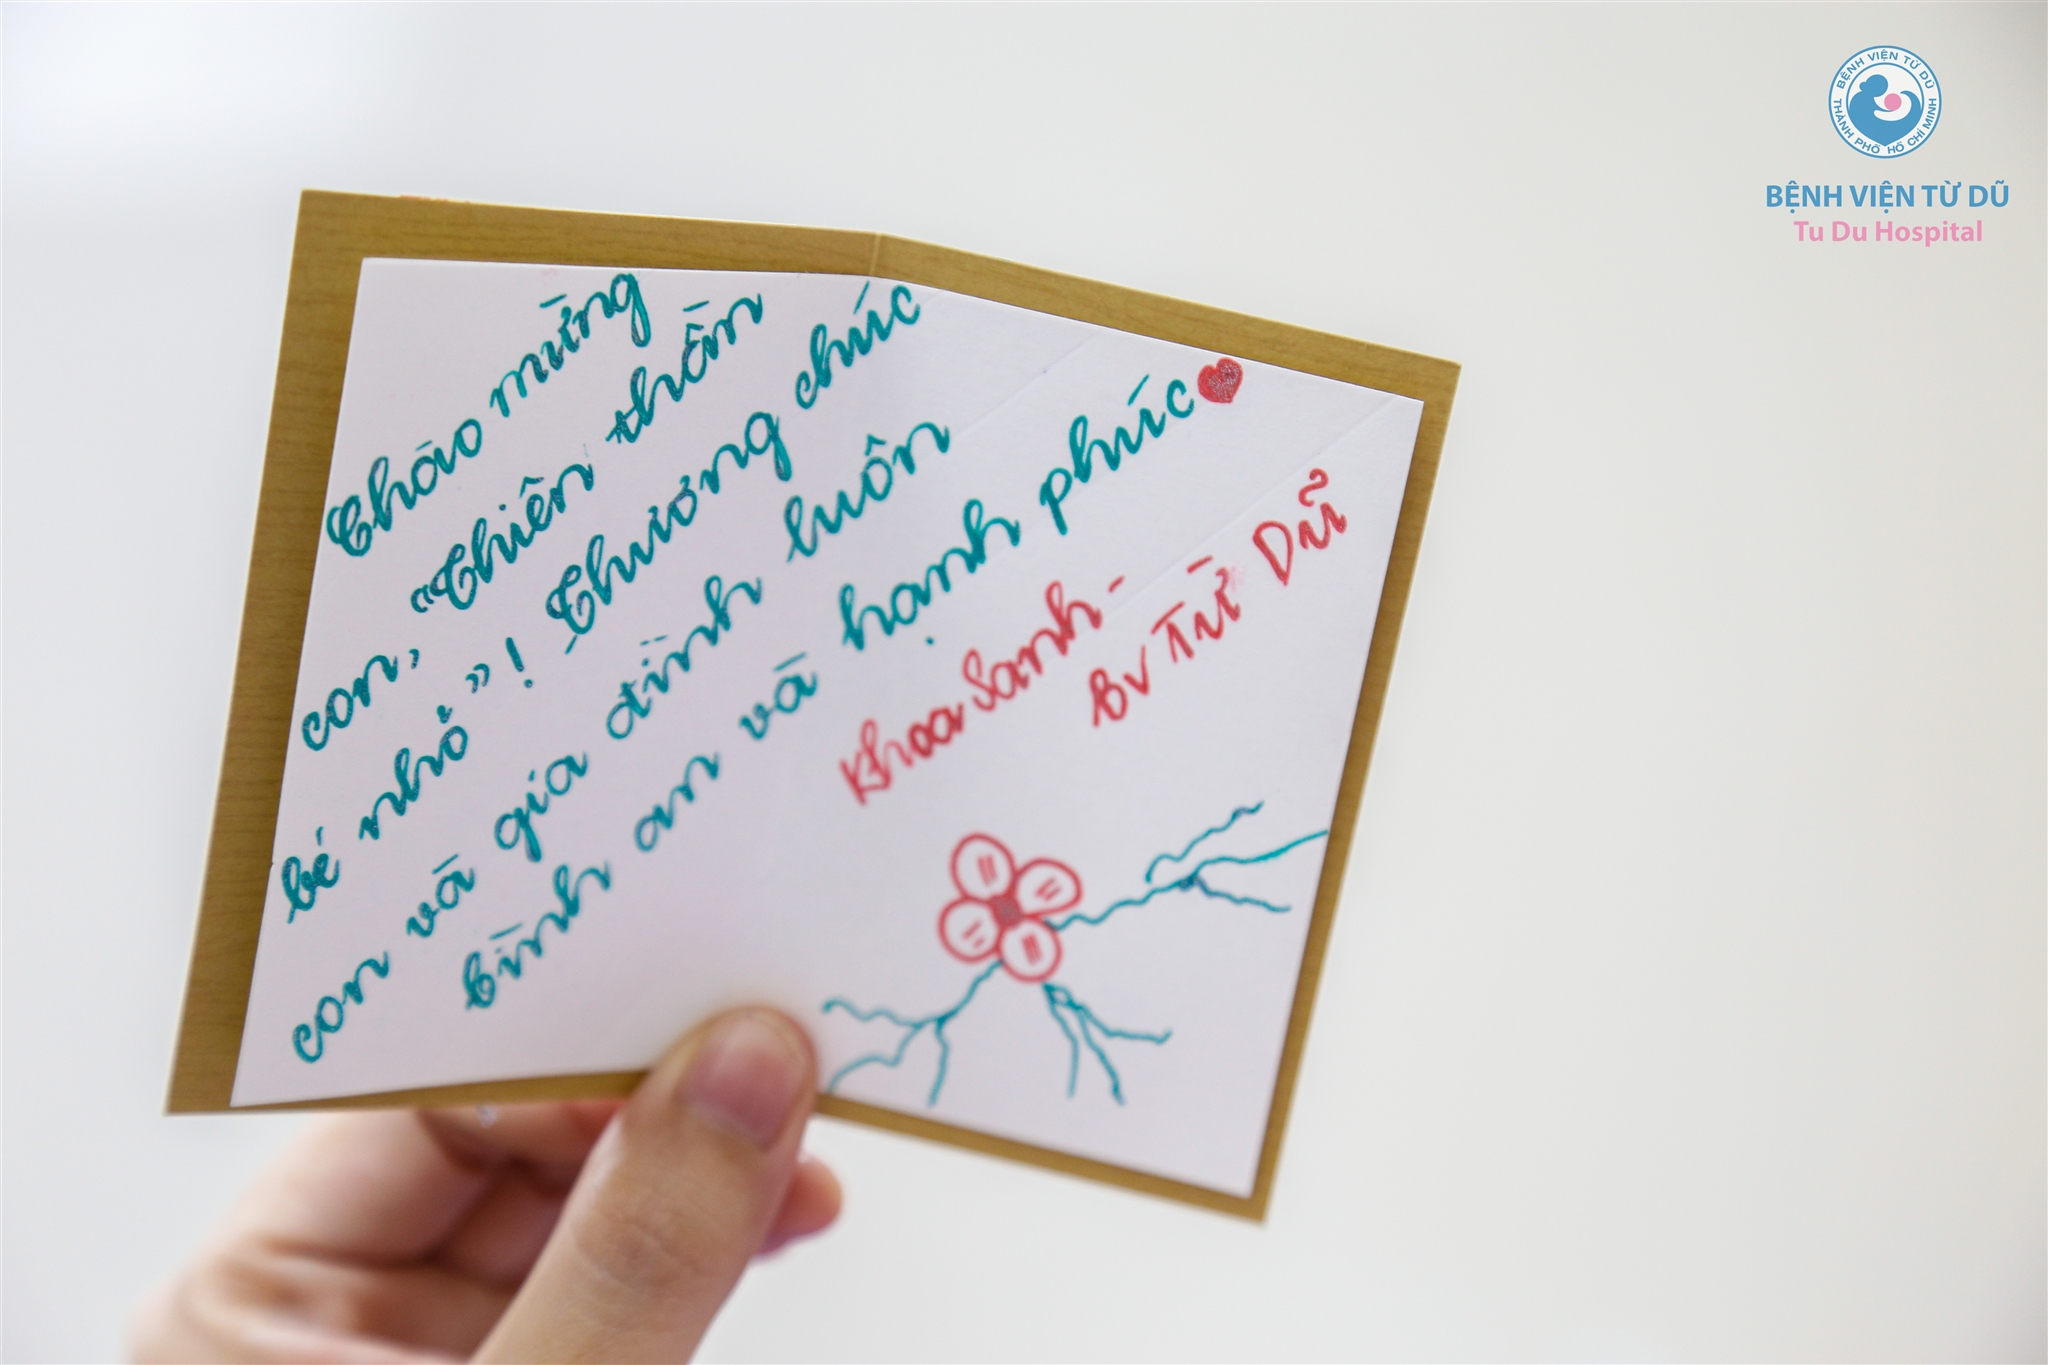 Chào mừng
con, "Thiên thần
bé nhỏ"! Thương chúc
con và gia đình luôn
bình an và hạnh phúc
Khoa Sanh -
BV Từ Dũ
BỆNH VIỆN TỪ DŨ
THÀNH PHỐ HỒ CHÍ MINH
BỆNH VIỆN TỪ DŨ
Tu Du Hospital